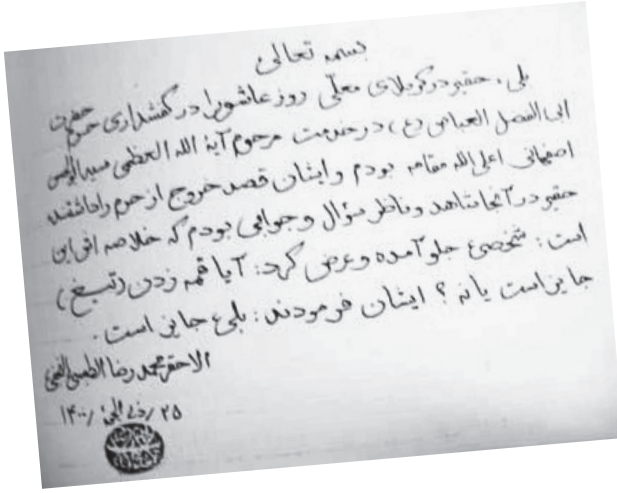 بسمه تعالی
بلی، حقیر در کربلای معلّی روز عاشورا در کفشداری حرم حضرت
ابی الفضل العباس (ع) در خدمت مرحوم آیة الله العظمی سید ابوالحسن
اصفهانی اعلی الله مقامه بودم و ایشان قصد خروج از حرم را داشتند
حقیر در آنجا شاهد و ناظر سؤال و جوابی بودم که خلاصه اش این
است: شخصی جلو آمده و عرض کرد: آیا قمه زدن (تیغ)
جایز است یا نه؟ ایشان فرمودند: بلی جایز است.
الاحقر محمد رضا الطبسی النجفی
۲۵/ذی الحجة/۱۴۰۰